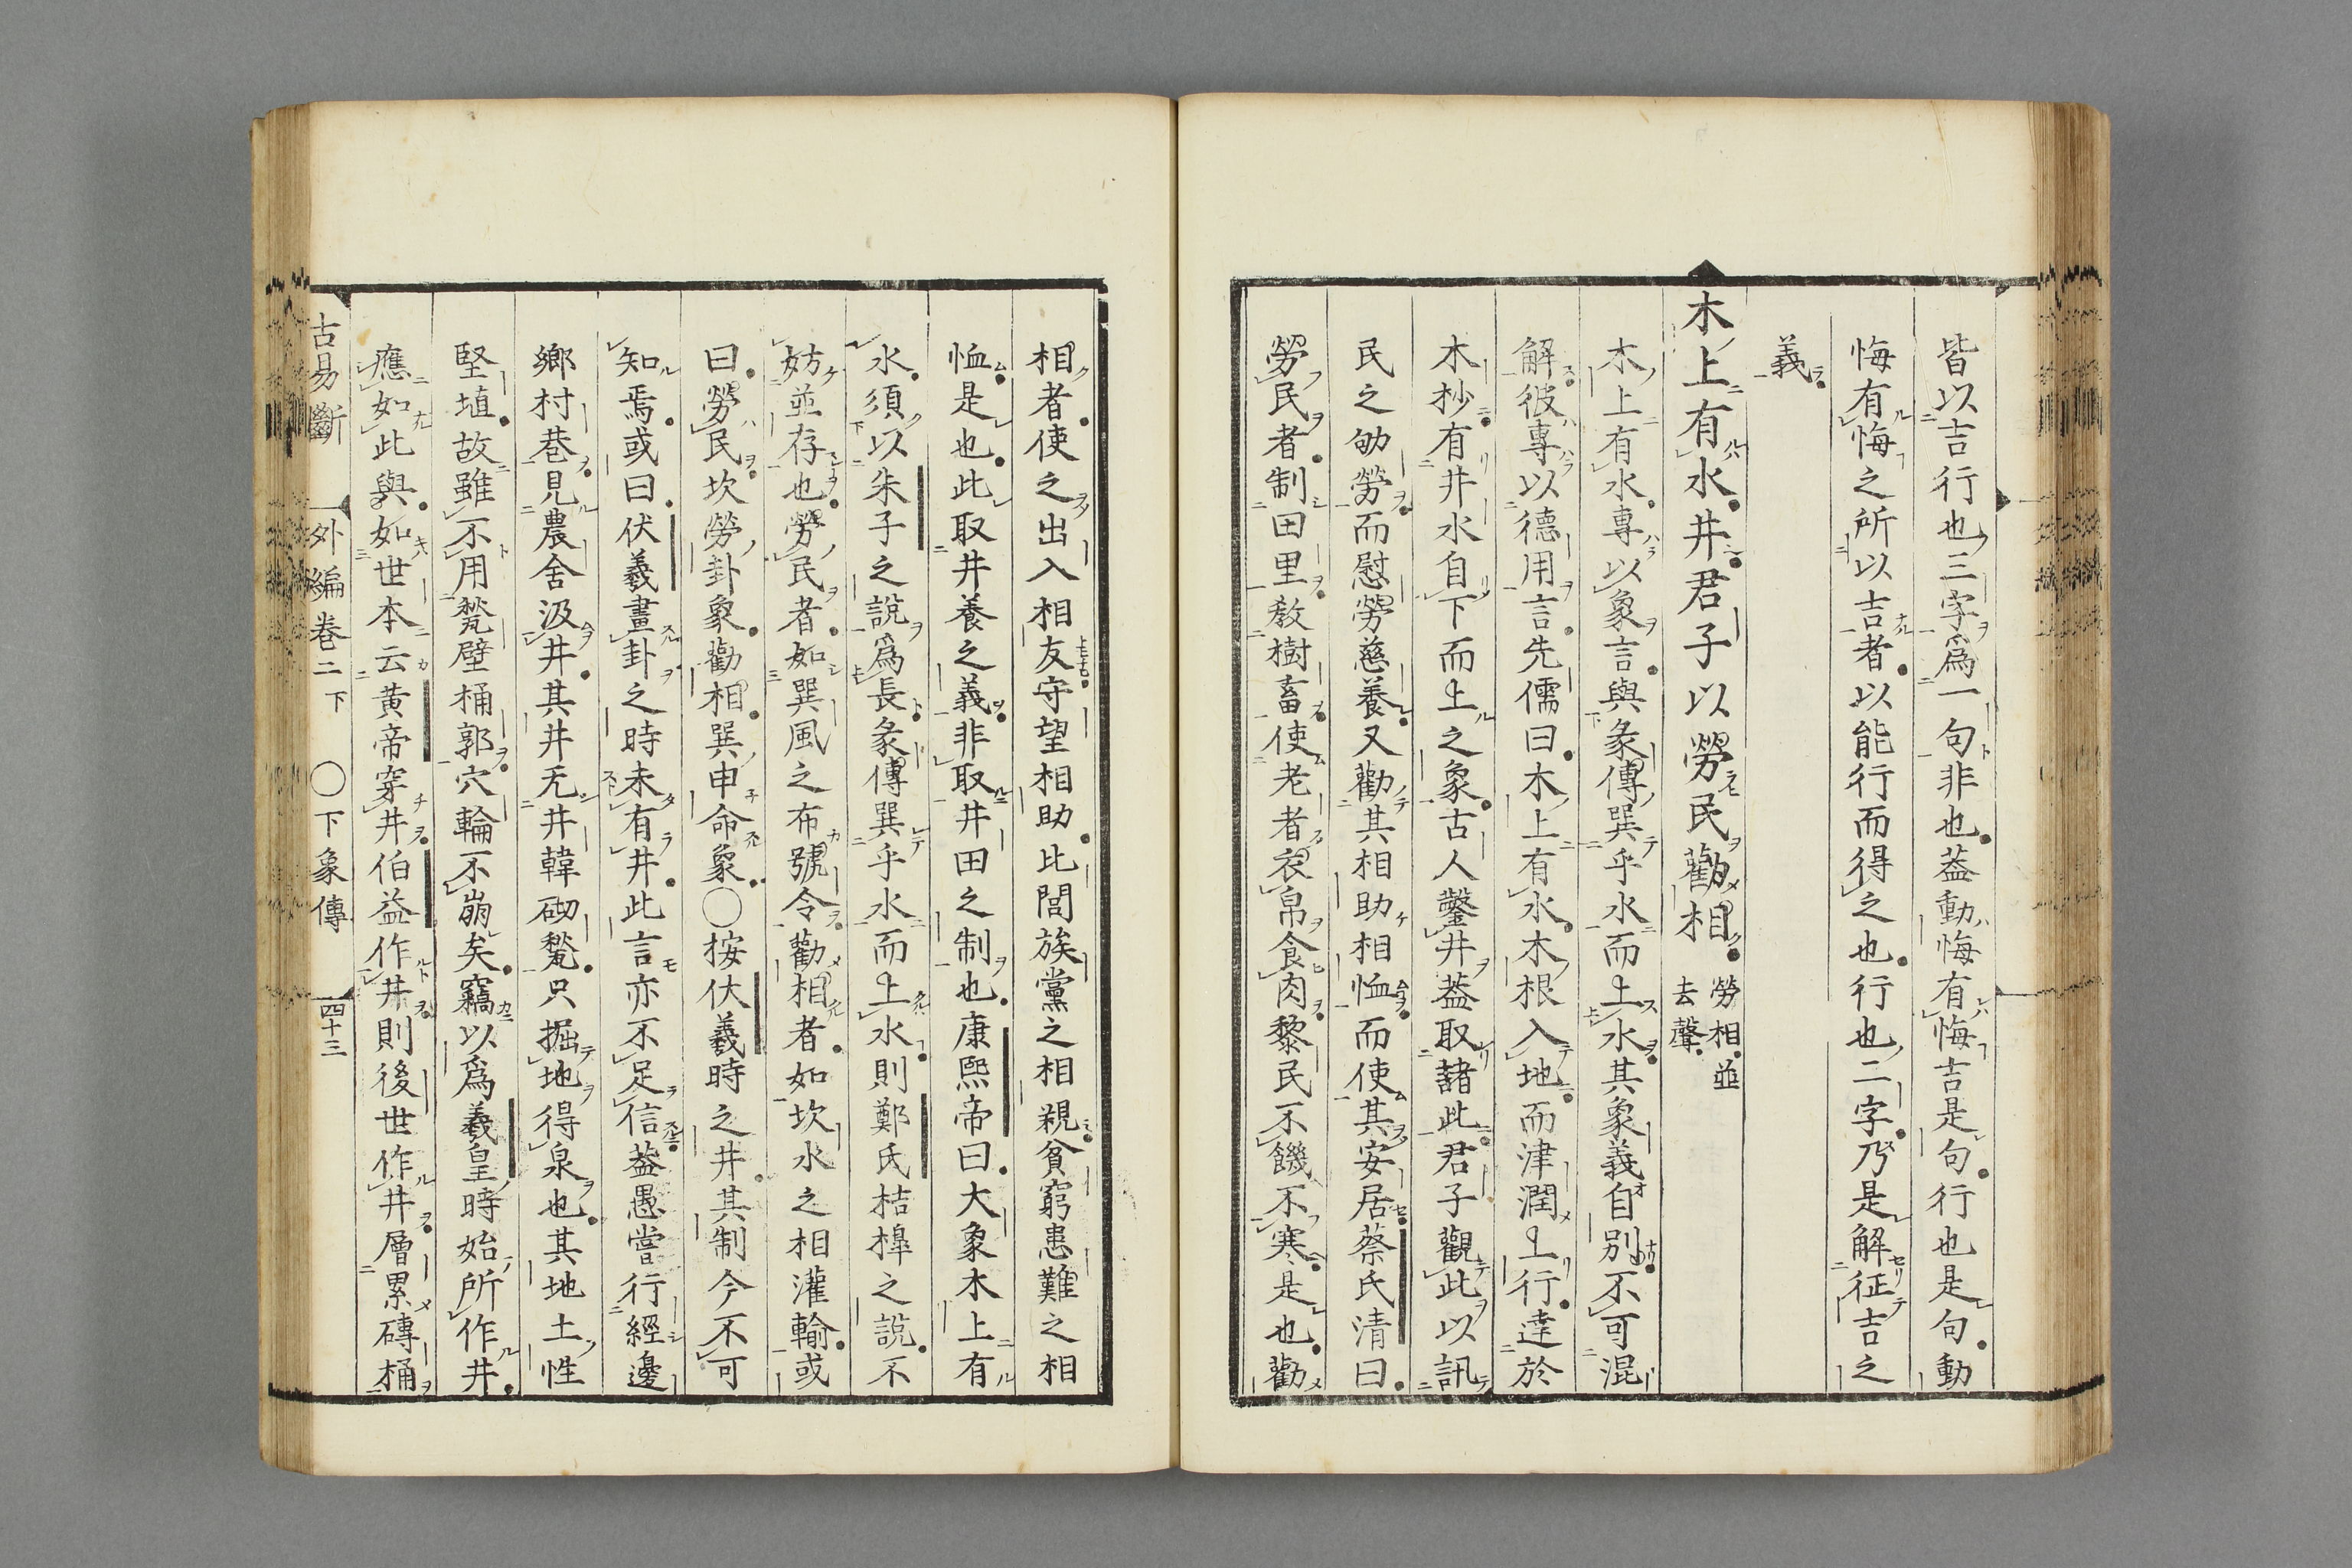 皆以吉行也三字爲一句非也蓋動悔有悔吉是句行也是句動
悔有悔之所以吉者以能行而得之也行也二字乃是解征吉之
義
木上有水井君子以勞民勸相 勞相並去聲
木上有水專以象言與彖傳巽乎水而上水其象義自別不可混
解彼專以德用言先儒曰木上有水木根入地而津潤上行達於
木杪有井水自下而上之象古人鑿井蓋取諸此君子觀此以訊
民之劬勞而慰勞慈養又勸其相助相恤而使其安居蔡氏清曰
勞民者制田里敎樹畜使老者衣帛食肉黎民不饑不寒是也勸
相者使之出入相友守望相助比閭族黨之相親貧窮患難之相
恤是也此取井養之義非取井田之制也康熙帝曰大象木上有
水須以朱子之說爲長彖傳巽乎水而上水則鄭氏桔槹之說不
妨並存也勞民者如巽風之布號令勸相者如坎水之相灌輸或
曰勞民坎勞卦象勸相巽申命象〇按伏羲時之井其制今不可
知焉或曰伏羲畫卦之時未有井此言亦不足信蓋愚嘗行經邊
鄉村巷見農舍汲井其井无井韓砌甃只掘地得泉也其地土性
堅埴故雖不用甃壁桶郭穴輪不崩矣竊以爲羲皇時始所作井
應如此與如世本云黃帝穿井伯益作井則後世作井層累磚桶
古易斷 外編卷二下 〇下象傳 四十三